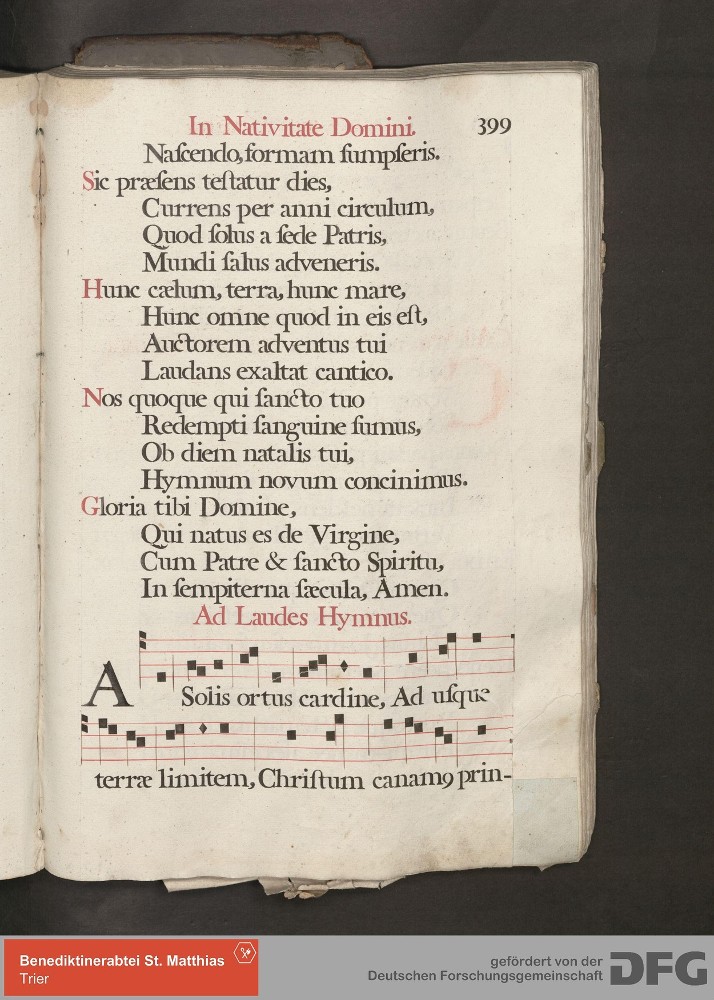 In Nativitate Domini. 399
Naſcendo, formam ſumpſeris.
Sic præſens teſtatur dies,
Currens per anni circulum,
Quod ſolus a ſede Patris,
Mundi ſalus adveneris.
Hunc cælum, terra, hunc mare,
Hunc omne quod in eis eſt,
Auctorem adventus tui
Laudans exaltat cantico.
Nos quoque qui ſancto tuo
Redempti ſanguine ſumus,
Ob diem natalis tui,
Hymnum novum concinimus.
Gloria tibi Domine,
Qui natus es de Virgine,
Cum Patre & ſancto Spiritu,
In ſempiterna ſæcula, Amen.
Ad Laudes Hymnus.
A Solis ortus cardine, Ad uſque
terræ limitem, Chriſtum canamꝯ prin-
Benediktinerabtei St. Matthias
Trier
gefördert von der
Deutschen Forschungsgemeinschaft
DFG